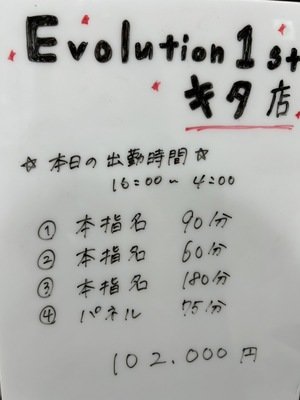 Evolution 1st
キタ店
☆ 本日の出勤時間 ☆
16:00〜4:00
① 本指名 90分
② 本指名 60分
③ 本指名 180分
④ パネル 75分
102.000円